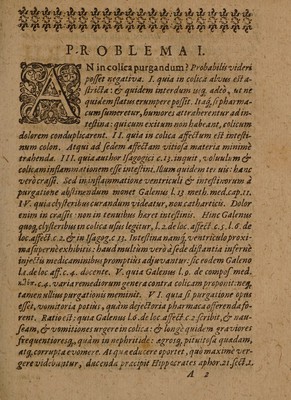 PROBLEMA I.
AN in colica purgandum? Probabilis videri
posset negativa. I. quia in colica alvus est a-
stricta: & quidem interdum usq; adeò, ut ne
quidem flatus erumpere possit. Itaq; si pharma-
cum sumeretur, humores attraherentur ad in-
testina: qui cum exitum non habeant, colicum
dolorem conduplicarent. II. quia in colica affectum est intesti-
num colon. Atqui ad sedem affectam vitiosa materia minimè
trahenda. III. quia author Isagogici c.13. inquit, volvulum &
colicam inflammationem esse intestini, Illum quidem tenuis: hanc
verò crassi. Sed in inflammatione ventriculi & intestinorum à
purgatione abstinendum monet Galenus l.13. meth. med. cap. 11.
IV. quia clysteribus curandum videatur, non catharticis. Dolor
enim in crassis: non in tenuibus haret intestinis. Hinc Galenus
quoq; clysteribus in colica usus legitur, l.2. de loc. aff. c.5. l.6. de
loc. affect. c.2. & in Isagog. c.13. Intestina namq; ventriculo proxi-
ma superne exhibitis: haud multùm verò à sede distantia inferne
injectis medicaminibus promptiùs adjuvantur: sic eodem Galeno
l.a. de loc. aff. c.4. docente. V. quia Galenus l.9. de compos. med.
c.4. varia remediorum genera contra colicam proponit: neq;
tamen ullius purgationis meminit. VI. quia si purgatione opus
esset, vomitoria potius, quàm dejectoria pharmaca afferenda fo-
rent. Ratio est: quia Galenus l.6. de loc. affect. c.2. scribit, & nau-
seam, & vomitiones urgere in colica: & longè quidem graviores
frequentioresq; quàm in nephritide: agrosq; pituitosa quadam,
atq; corrupta evomere. Atqui educere oportet, quò maximè ver-
gere videbuntur, ducenda præcipit Hippocrates aphor. 21. sect. 1.
A 2